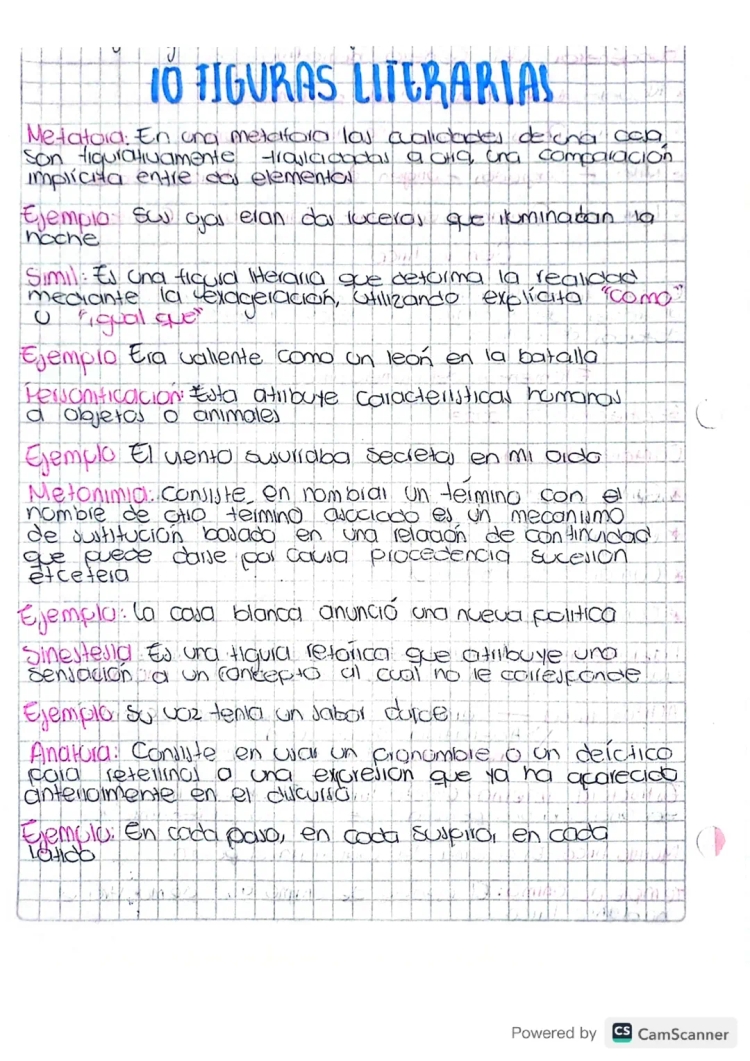 10 FIGURAS LITERARIAS
Metafora: En una metafora las cualidades de una cosa
son figurativamente trasladadas a otra, una comparación
implícita entre dos elementos
Ejemplo: Sus ojos eran dos luceros que iluminaban la
noche
Simil: Es una figura literaria que deforma la realidad
mediante la exageración, utilizando explícita "como"
u "igual que"
Ejemplo Era valiente como un león en la batalla
Personificación: Esta atribuye caracteristicas humanas
a objetos o animales
Ejemplo El viento susurraba secretos en mi oido
Metonimia: Consiste en nombrar un término con el
nombre de otro termino asociado es un mecanismo
de sustitución basado en una relación de continuidad
que puede darse por causa procedencia sucesion
etcetera
Ejemplo: La casa blanca anunció una nueva politica
Sinestesia Es una figura retórica que atribuye una
sensación a un concepto al cual no le corresponde
Ejemplo Su voz tenia un sabor dulce
Anafora: Consiste en usar un pronombre o un deíctico
para referirnos a una expresion que ya ha aparecido
anteriormente en el discurso
Ejemplo: En cada paso, en cada suspiro, en cada
latido
Powered by CS CamScanner